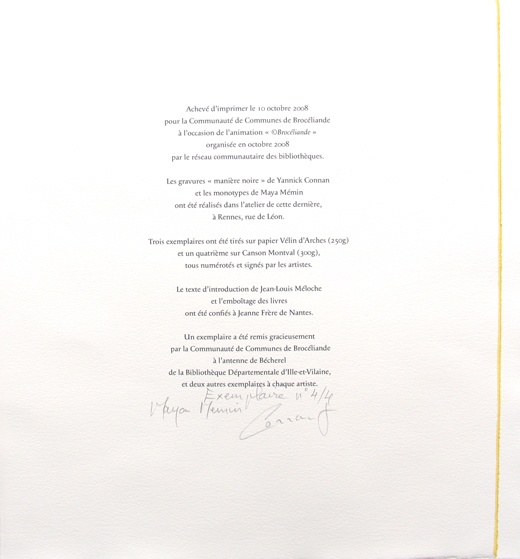 Achevé d'imprimer le 10 octobre 2008
pour la Communauté de Communes de Brocéliande
à l'occasion de l'animation « ©Brocéliande »
organisée en octobre 2008
par le réseau communautaire des bibliothèques.
Les gravures « manière noire » de Yannick Connan
et les monotypes de Maya Mémin
ont été réalisés dans l'atelier de cette dernière,
à Rennes, rue de Léon.
Trois exemplaires ont été tirés sur papier Vélin d'Arches (250g)
et un quatrième sur Canson Montval (300g),
tous numérotés et signés par les artistes.
Le texte d'introduction de Jean-Louis Méloche
et l'emboîtage des livres
ont été confiés à Jeanne Frère de Nantes.
Un exemplaire a été remis gracieusement
par la Communauté de Communes de Brocéliande
à l'antenne de Bécherel
de la Bibliothèque Départementale d'Ille-et-Vilaine,
et deux autres exemplaires à chaque artiste.
Exemplaire n° 4/4
Maya Memin
Connan